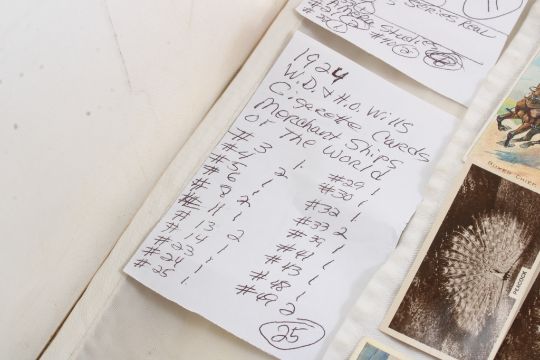 Series Real
11
Studies
1924
W.D. & H.O. Wills
Cigarette Cards
Merchant Ships
Of The World
#3 1
#4 2
#5 1
#6 1
#8 2
#11 1
#13 2
#14 1
#23 1
#24 1
#25 1
#29 1
#30 1
#32 1
#33 2
#39 1
#41 1
#43 1
#48 1
#49 2
25
PEACOCK